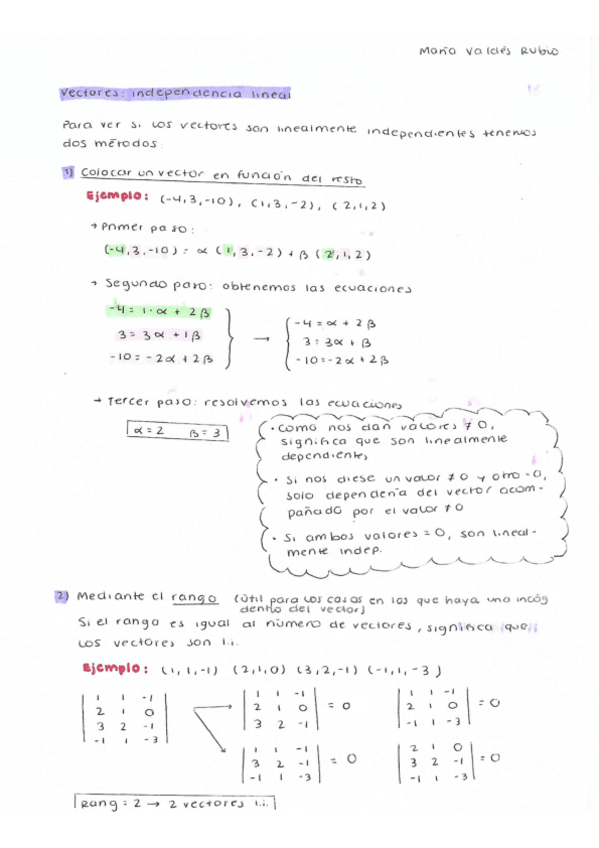 María Valdés Rubio
Vectores: independencia lineal
Para ver si los vectores son linealmente independientes tenemos
dos métodos
1) Colocar un vector en función del resto
Ejemplo: (-4,3,-10), (1,3,-2), (2,1,2)
→ Primer paso:
(-4,3,-10) = α (1,3,-2) + β (2,1,2)
→ Segundo paso: obtenemos las ecuaciones
-4 = 1·α + 2β
3 = 3α + 1β
-10 = -2α + 2β
→
-4 = α + 2β
3 = 3α + β
-10 = -2α + 2β
→ Tercer paso: resolvemos las ecuaciones
α = 2 β = 3
· Como nos dan valores ≠ 0,
significa que son linealmente
dependientes
· Si nos diese un valor ≠ 0 y otro = 0,
solo dependería del vector acom-
pañado por el valor ≠ 0
· Si ambos valores = 0, son lineal-
mente indep.
2) Mediante el rango (útil para los casos en los que haya una incóg
dentro del vector)
Si el rango es igual al número de vectores, significa que
los vectores son l.i.
Ejemplo: (1,1,-1) (2,1,0) (3,2,-1) (-1,1,-3)
1 1 -1
2 1 0
3 2 -1
-1 1 -3
1 1 -1
2 1 0
3 2 -1
= 0
1 1 -1
2 1 0
-1 1 -3
= 0
1 1 -1
3 2 -1
-1 1 -3
= 0
2 1 0
3 2 -1
-1 1 -3
= 0
Rang = 2 → 2 vectores l.i.